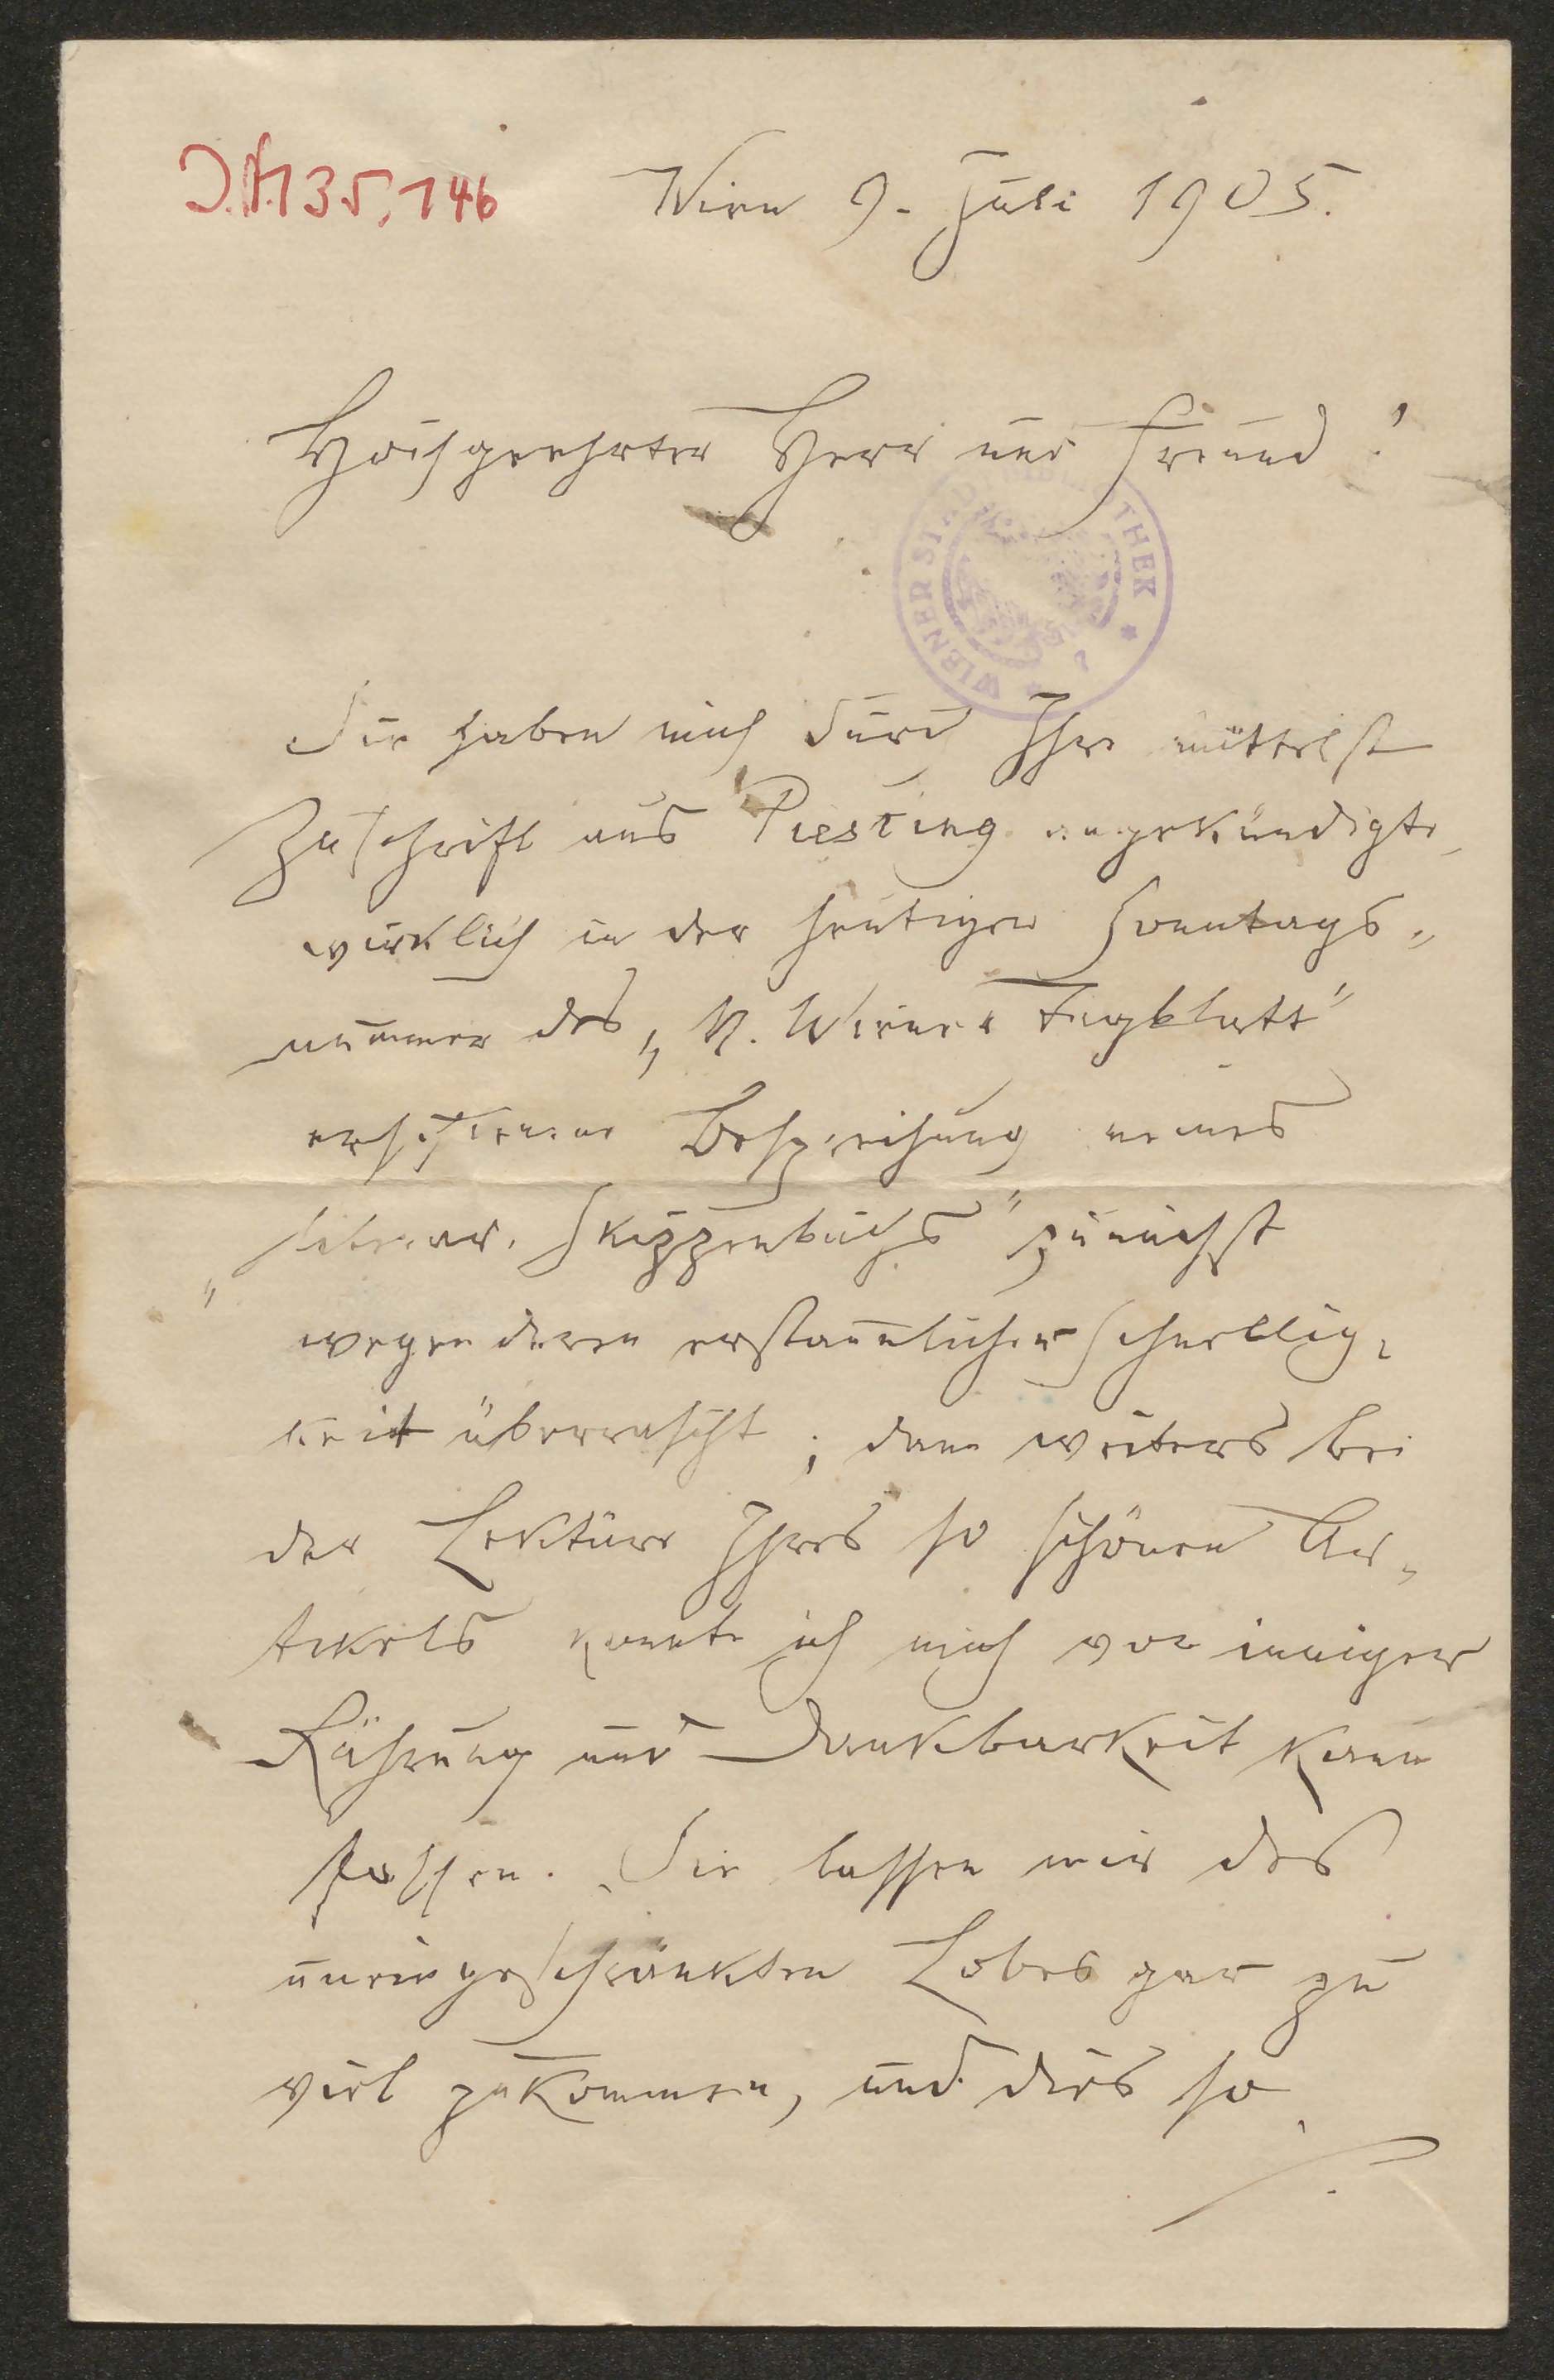 J.N. 135.146
Wien 9. Juli 1905.
Hochgeehrter Herr und Freund!
WIENER STADTBIBLIOTHEK
Sie haben mich durch Ihre mittelst
Zuschrift aus Piesting angekündigte,
wirklich in der heutigen Sonntags-
nummer des „N. Wiener Tagblatt“
erschienene Besprechung meines
„literar. Skizzenbuchs“ zunächst
wegen deren erstaunlicher Schnellig-
keit überrascht; dann weiters bei
der Lektüre Ihres so schönen Ar-
tikels konnte ich mich vor inniger
Rührung und Dankbarkeit kaum
fassen. Sie lassen mir des
uneingeschränkten Lobes gar zu
viel zukommen, und dies so